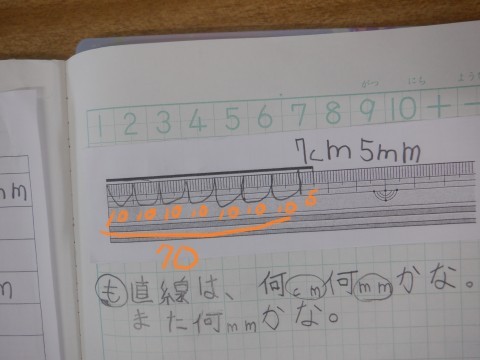 mm
m
がつ にち ようび
1 2 3 4 5 6 7 8 9 10 + −
7cm5mm
10 10 10 10 10 10 10 5
70
も 直線は、何cm何mmかな。
また何mmかな。